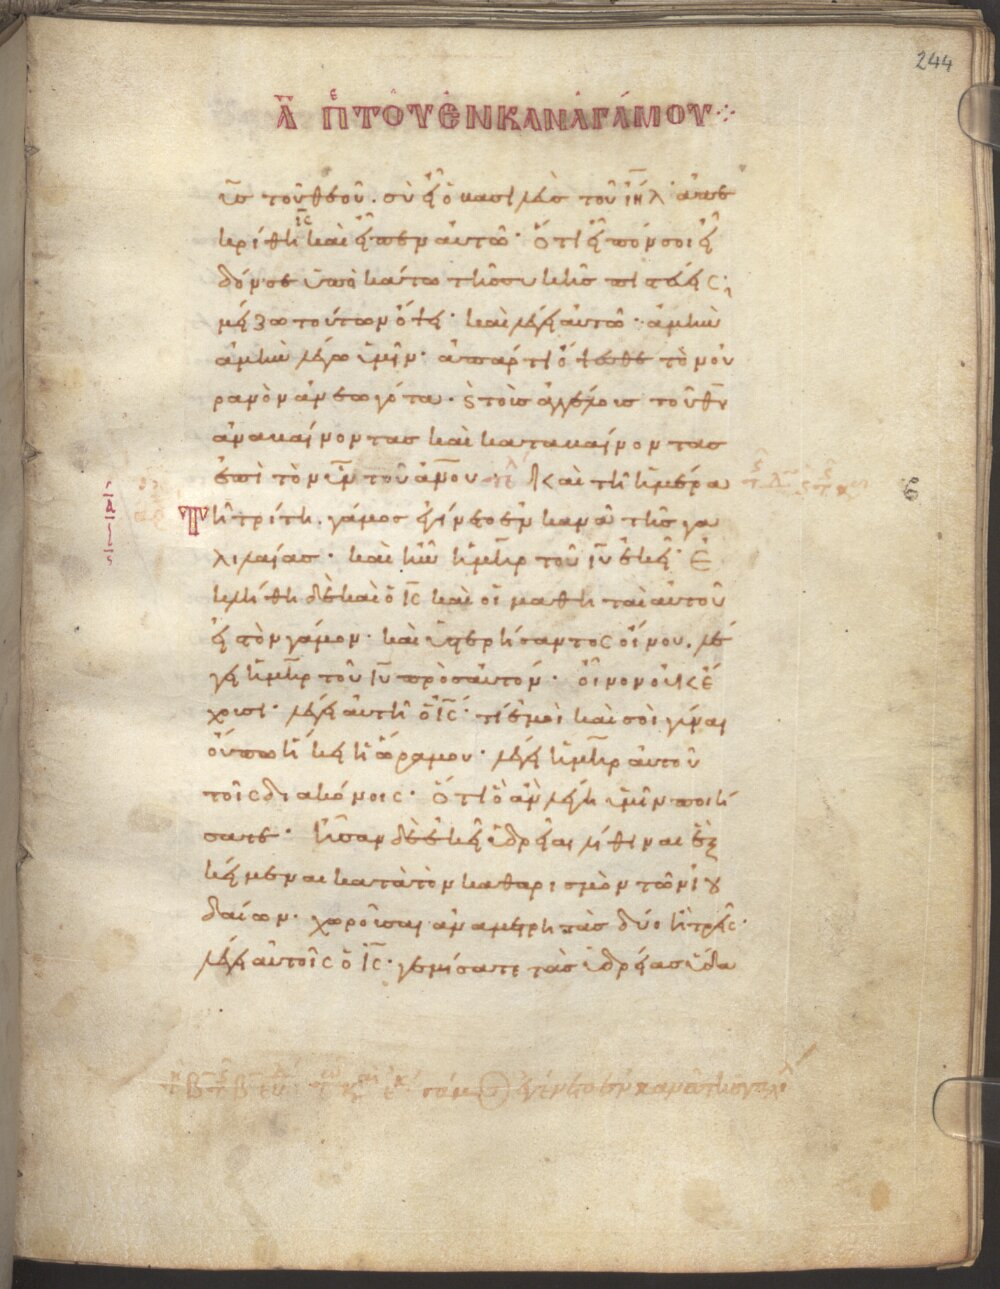 244
Α περὶ τοῦ ἐν Κανᾶ γάμου
υἱς τοῦ θεοῦ. σὺ εἶ ὁ βασιλεὺς τοῦ ιηλ ἀπε
κρίθη ις καὶ εἶπεν αὐτῶ. ὅτι εἶπόν σοι εἶ
δόν σε ὑπὸ κάτω τῆς συκῆς πιστεύεις;
μείζω τούτων ὄψει. καὶ λέγει αὐτῶ. ἀμὴν
ἀμὴν λέγω ὑμῖν. ἀπάρτι ὄψεσθε τὸν οὐ
ρανὸν ἀνεωγότα. καὶ τοὺς ἀγγέλους τοῦ θυ
ἀναβαίνοντας καὶ καταβαίνοντας
ἐπὶ τὸν υιν τοῦ ανου Καὶ τῆ ἡμέρα
τῆ τρίτη. γάμος ἐγένετο ἐν κανᾶ τῆς γα
λιλαίας. καὶ ἦν ἡ μηρ τοῦ ιυ ἐκεῖ. Ἐ
κλήθη δὲ καὶ ὁ ις καὶ οἱ μαθηταὶ αὐτοῦ
εἰς τὸν γάμον. καὶ ὑστερήσαντος οἴνου. λέ
γει ἡ μηρ τοῦ ιυ πρὸς αὐτόν. οἶνον οὐκ ἔ
χουσι. λέγει αὐτῆ ὁ ις. τί ἐμοὶ καὶ σοὶ γύναι
οὔπω ἥκει ἡ ὥρα μου. λέγει ἡ μηρ αὐτοῦ
τοῖς διακόνοις. ὅτι ὃ ἂν λέγη ὑμῖν ποιή
σατε. ἦσαν δὲ ἐκεῖ ὑδρίαι λίθιναι ἓξ
κείμεναι κατὰ τὸν καθαρισμὸν τῶν ἰου
δαίων. χωροῦσαι ἀνὰ μετρητὰς δύο ἢ τρεῖς.
λέγει αὐτοῖς ὁ ις. γεμίσατε τὰς ὑδρίας ὕδα
ἐγένετο ἐν κανᾶ τῆς γαλι